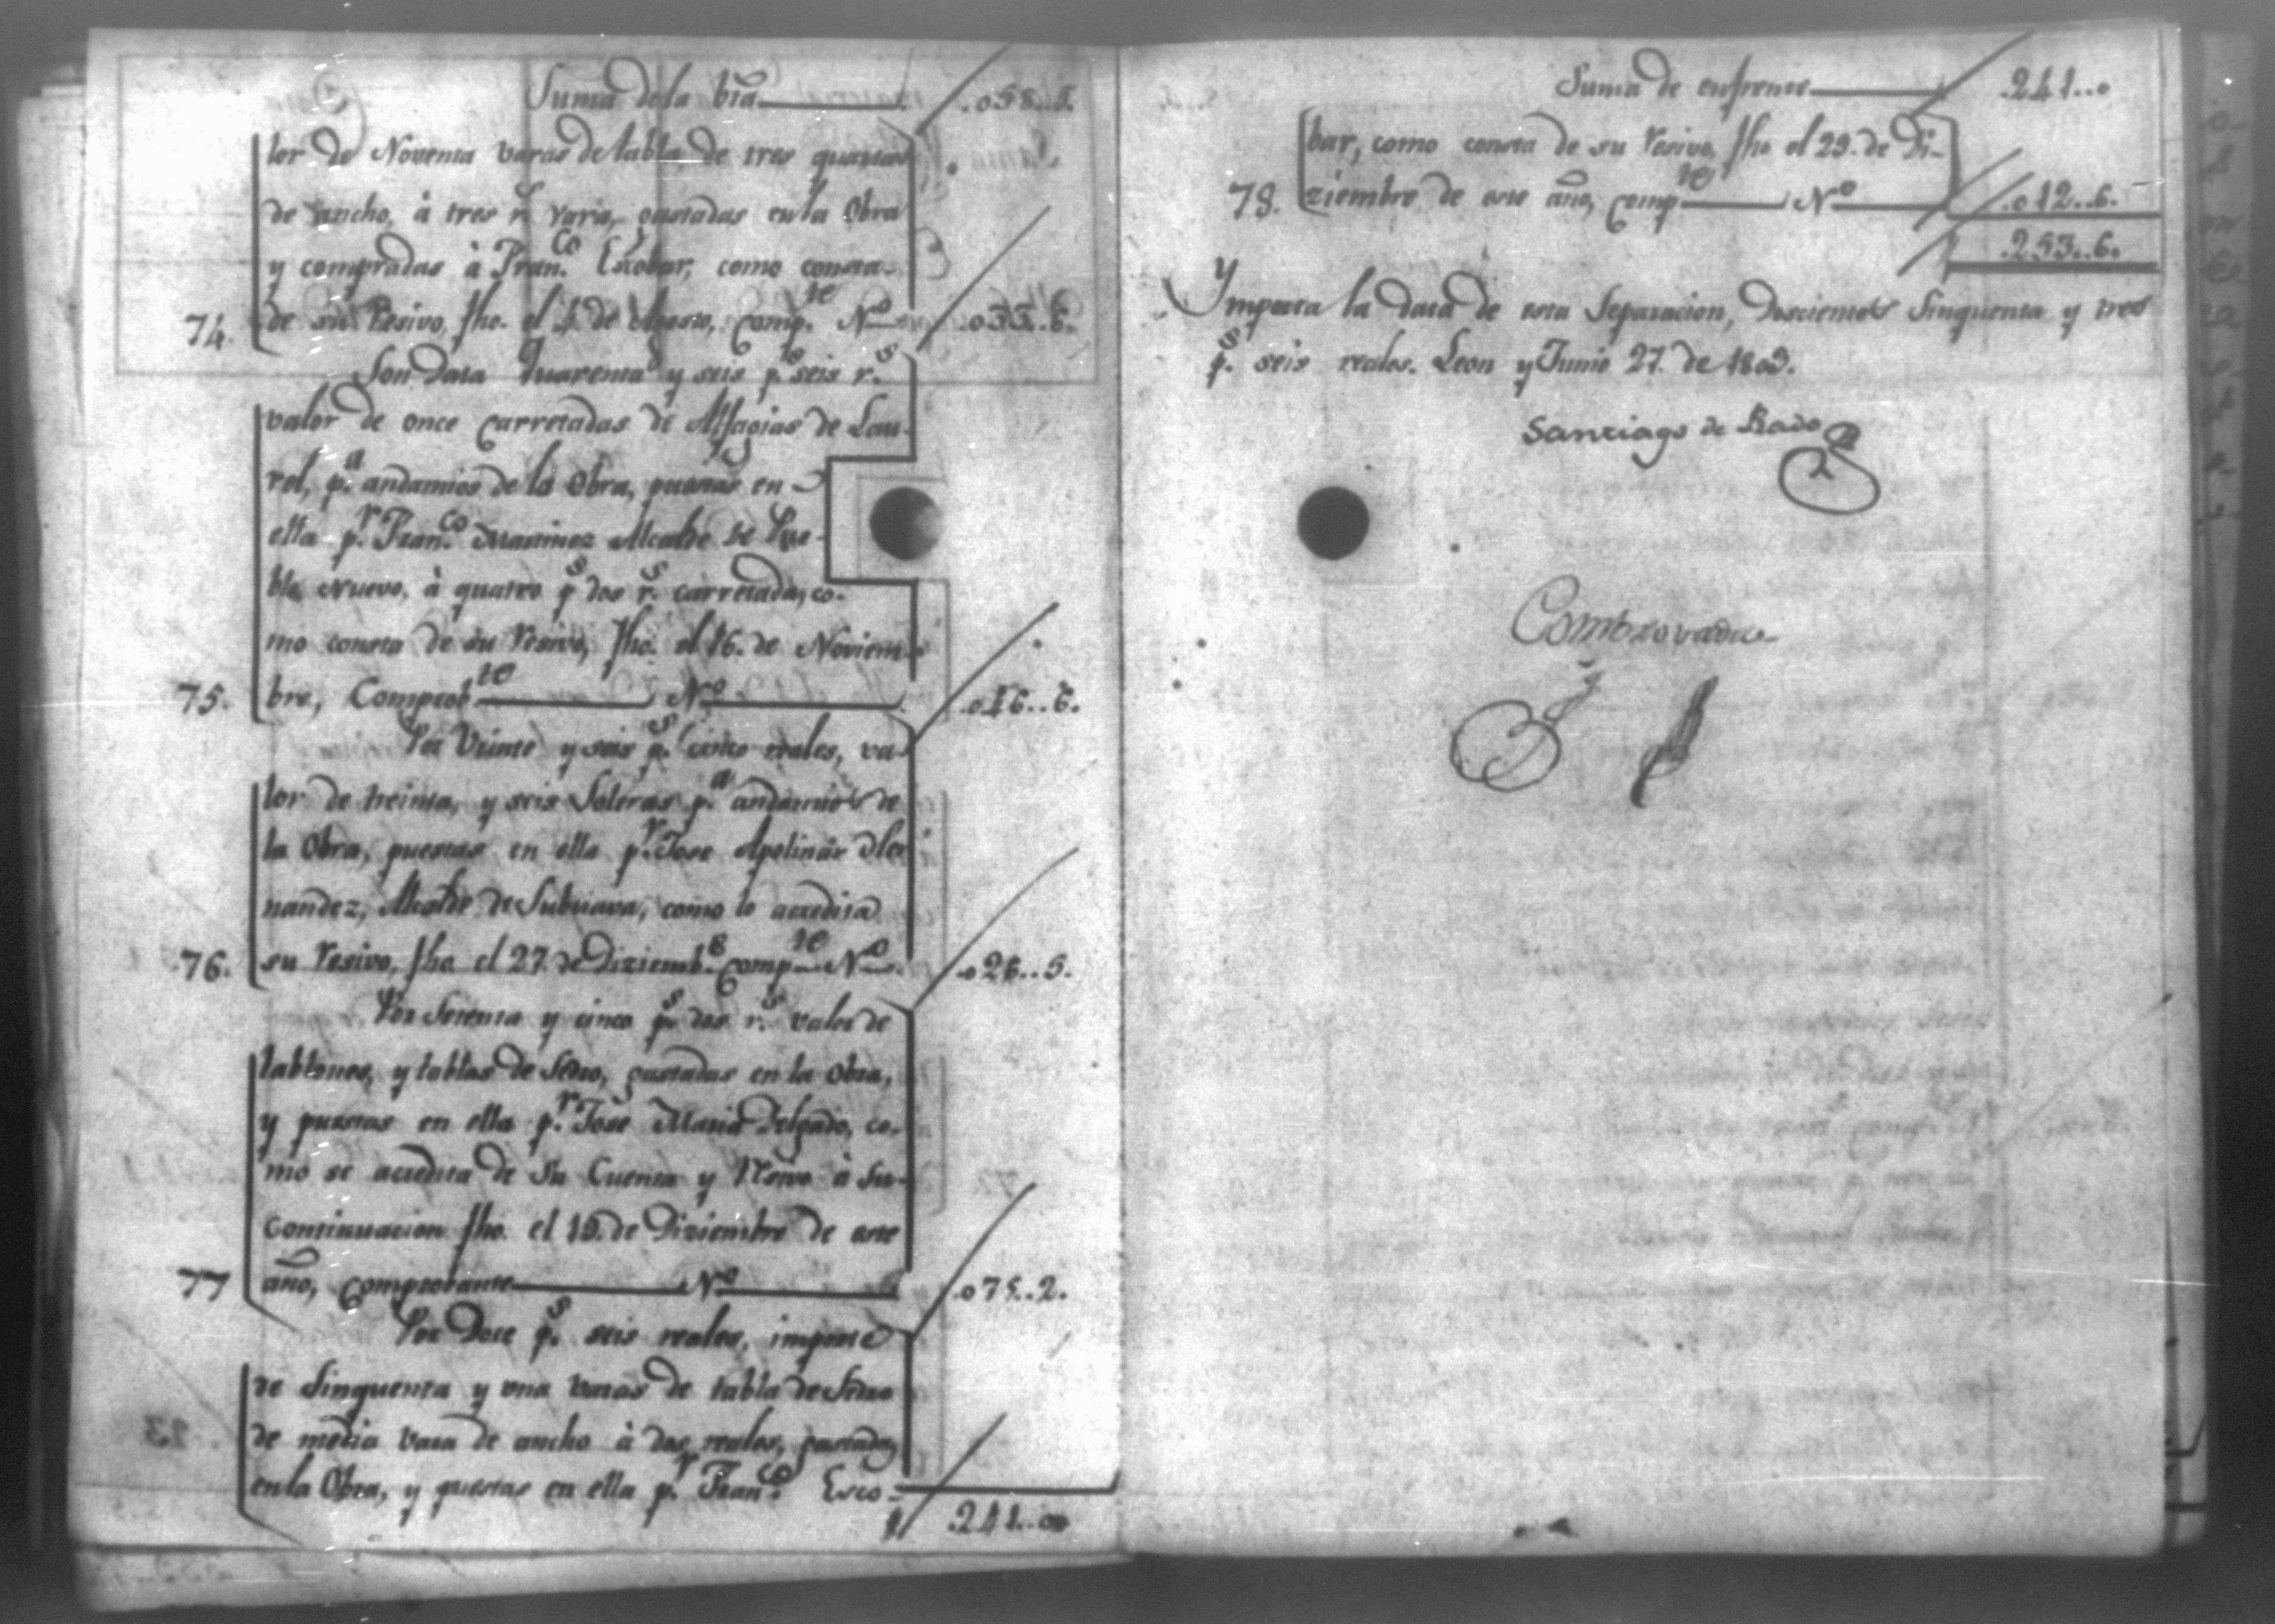 Suma de la bta ———— . 058..5.
lor de Noventa varas de tabla, de tres quartas
de ancho, à tres r.s varia, gastadas en la Obra
y compradas à Fran.co Escobar, como consta
74. de su Resivo, fho. el 4 de Agosto, comp.te Nº — . 033..6.
Son Data Quarenta y seis p.s seis r.s
valor de once carretadas de Alfagias de Lau-
rel, p.a andamios de la Obra, puestas en
ella p.r Fran.co Martinez Alcalde de Pue-
blo Nuevo, à quatro p.s dos r.s carretada, co-
mo consta de su Resivo, fho. el 16. de Noviem-
75. bre, Comprob.te ———— Nº ———— . 046..6.
Por Veinte y seis p.s cinco reales, va-
lor de treinta, y seis Soleras p.a andamios de
la Obra, puestas en ella p.r Jose Apolinar Her
nandez, Alcalde de Subtiava, como lo acredita
76. su Resivo, fho el 27 de Diziemb.e comp.te Nº — . 026..5.
Por Setenta y cinco p.s dos r.s valor de
tablones, y tablas de Sedro, gastadas en la Obra,
y puestas en ella p.r José Maria Delgado, co-
mo se acredita de Su Cuenta y Resivo à Su
Continuacion fho. el 19. de Diziembre de este
77 año, comprobante ———— Nº ———— . 075..2.
Por Doce p.s seis reales, importe
de Sinquenta y una varas de tabla de Sedro
de media vara de ancho à dos reales, gastadas
en la Obra, y puestas en ella p.r Fran.co Esco-
. 241..00
Suma de enfrente ———— . 241..0
bar, como consta de su Resivo, fho el 29. de Di-
78. ziembre de este año, comp.te ——— Nº ——— . 012..6.
. 253..6.
Ymporta la Data de esta Separacion, Doscientos Sinquenta y tres
p.s seis reales. Leon y Junio 27. de 1809.
Santiago de Rado
Combrovada